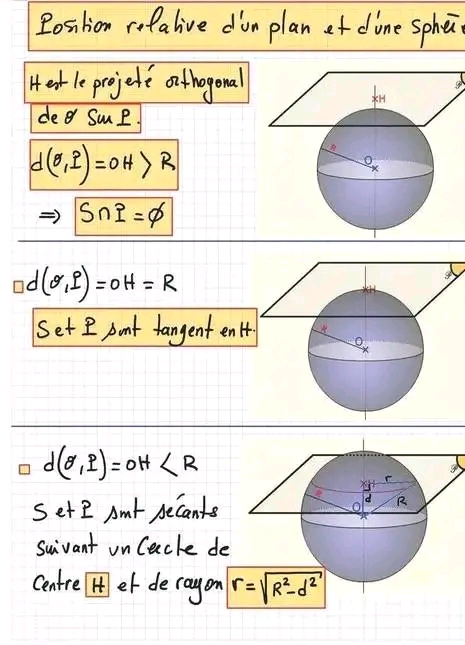 Position relative d'un plan et d'une sphère
H est le projeté orthogonal
de O sur P.
d(O,P) = OH > R
⇒ S∩P = ∅
H
R
O
P
d(O,P) = OH = R
S et P sont tangent en H.
H
R
O
P
d(O,P) = OH < R
S et P sont sécants
suivant un Cercle de
Centre H et de rayon r = √R²-d²
H
r
R
d
O
R
P